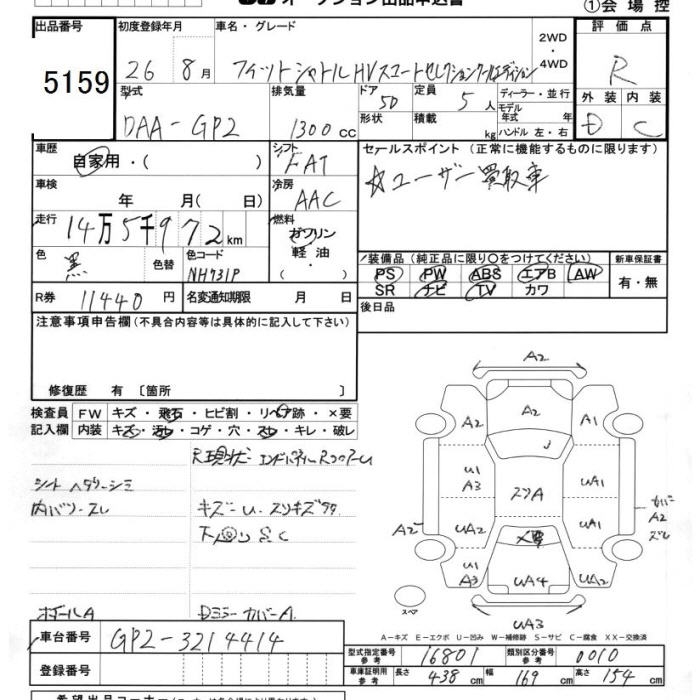 オークション出品申込書
①会場控
出品番号 初度登録年月 車名・グレード 2WD・4WD 評価点
5159 26年 8月 フィットシャトルHVスマートセレクションクールエディション R
型式 排気量 ドア 50 定員 5人 ディーラー・並行 外装 内装
DAA-GP2 1300cc 形状 積載 kg モデル年式 年 ハンドル 左・右 D C
車歴 自家用・( ) シフト FAT セールスポイント (正常に機能するものに限ります)
車検 年 月( 日) 冷房 AAC ☆ユーザー買取車
走行 14万5千972km 燃料 ガソリン・軽油・( )
色 黒 色替 色コード NH731P
装備品 (純正品に限り○をつけてください) 新車保証書
PS PW ABS エアB AW 有・無
SR ナビ TV カワ
R券 11440円 名変通知期限 月 日 後日品
注意事項申告欄 (不具合内容等は具体的に記入して下さい)
修復歴 有 [箇所 ]
検査員記入欄 FW キズ・飛石・ヒビ割・リペア跡・×要
内装 キズ・汚レ・コゲ・穴・スレ・キレ・破レ
シート ヘタリ・シミ
内バリ・スレ
キズ・U・スリキズ
下回りSC
Dミラーカバー A
A2
A2 A2 A1
U1 A3 スリA UA1
A2 UA2 UA1 カバー A2 ズレ
U1 A3 UA4 UA1
スペア
UA3
A-キズ E-エクボ U-凹み W-補修跡 S-サビ C-腐食 XX-交換済
車台番号 GP2-3214414
登録番号
型式指定番号 参考 16801 類別区分番号 参考 0010
車庫証明用 参考 長さ 438cm 幅 169cm 高さ 154cm